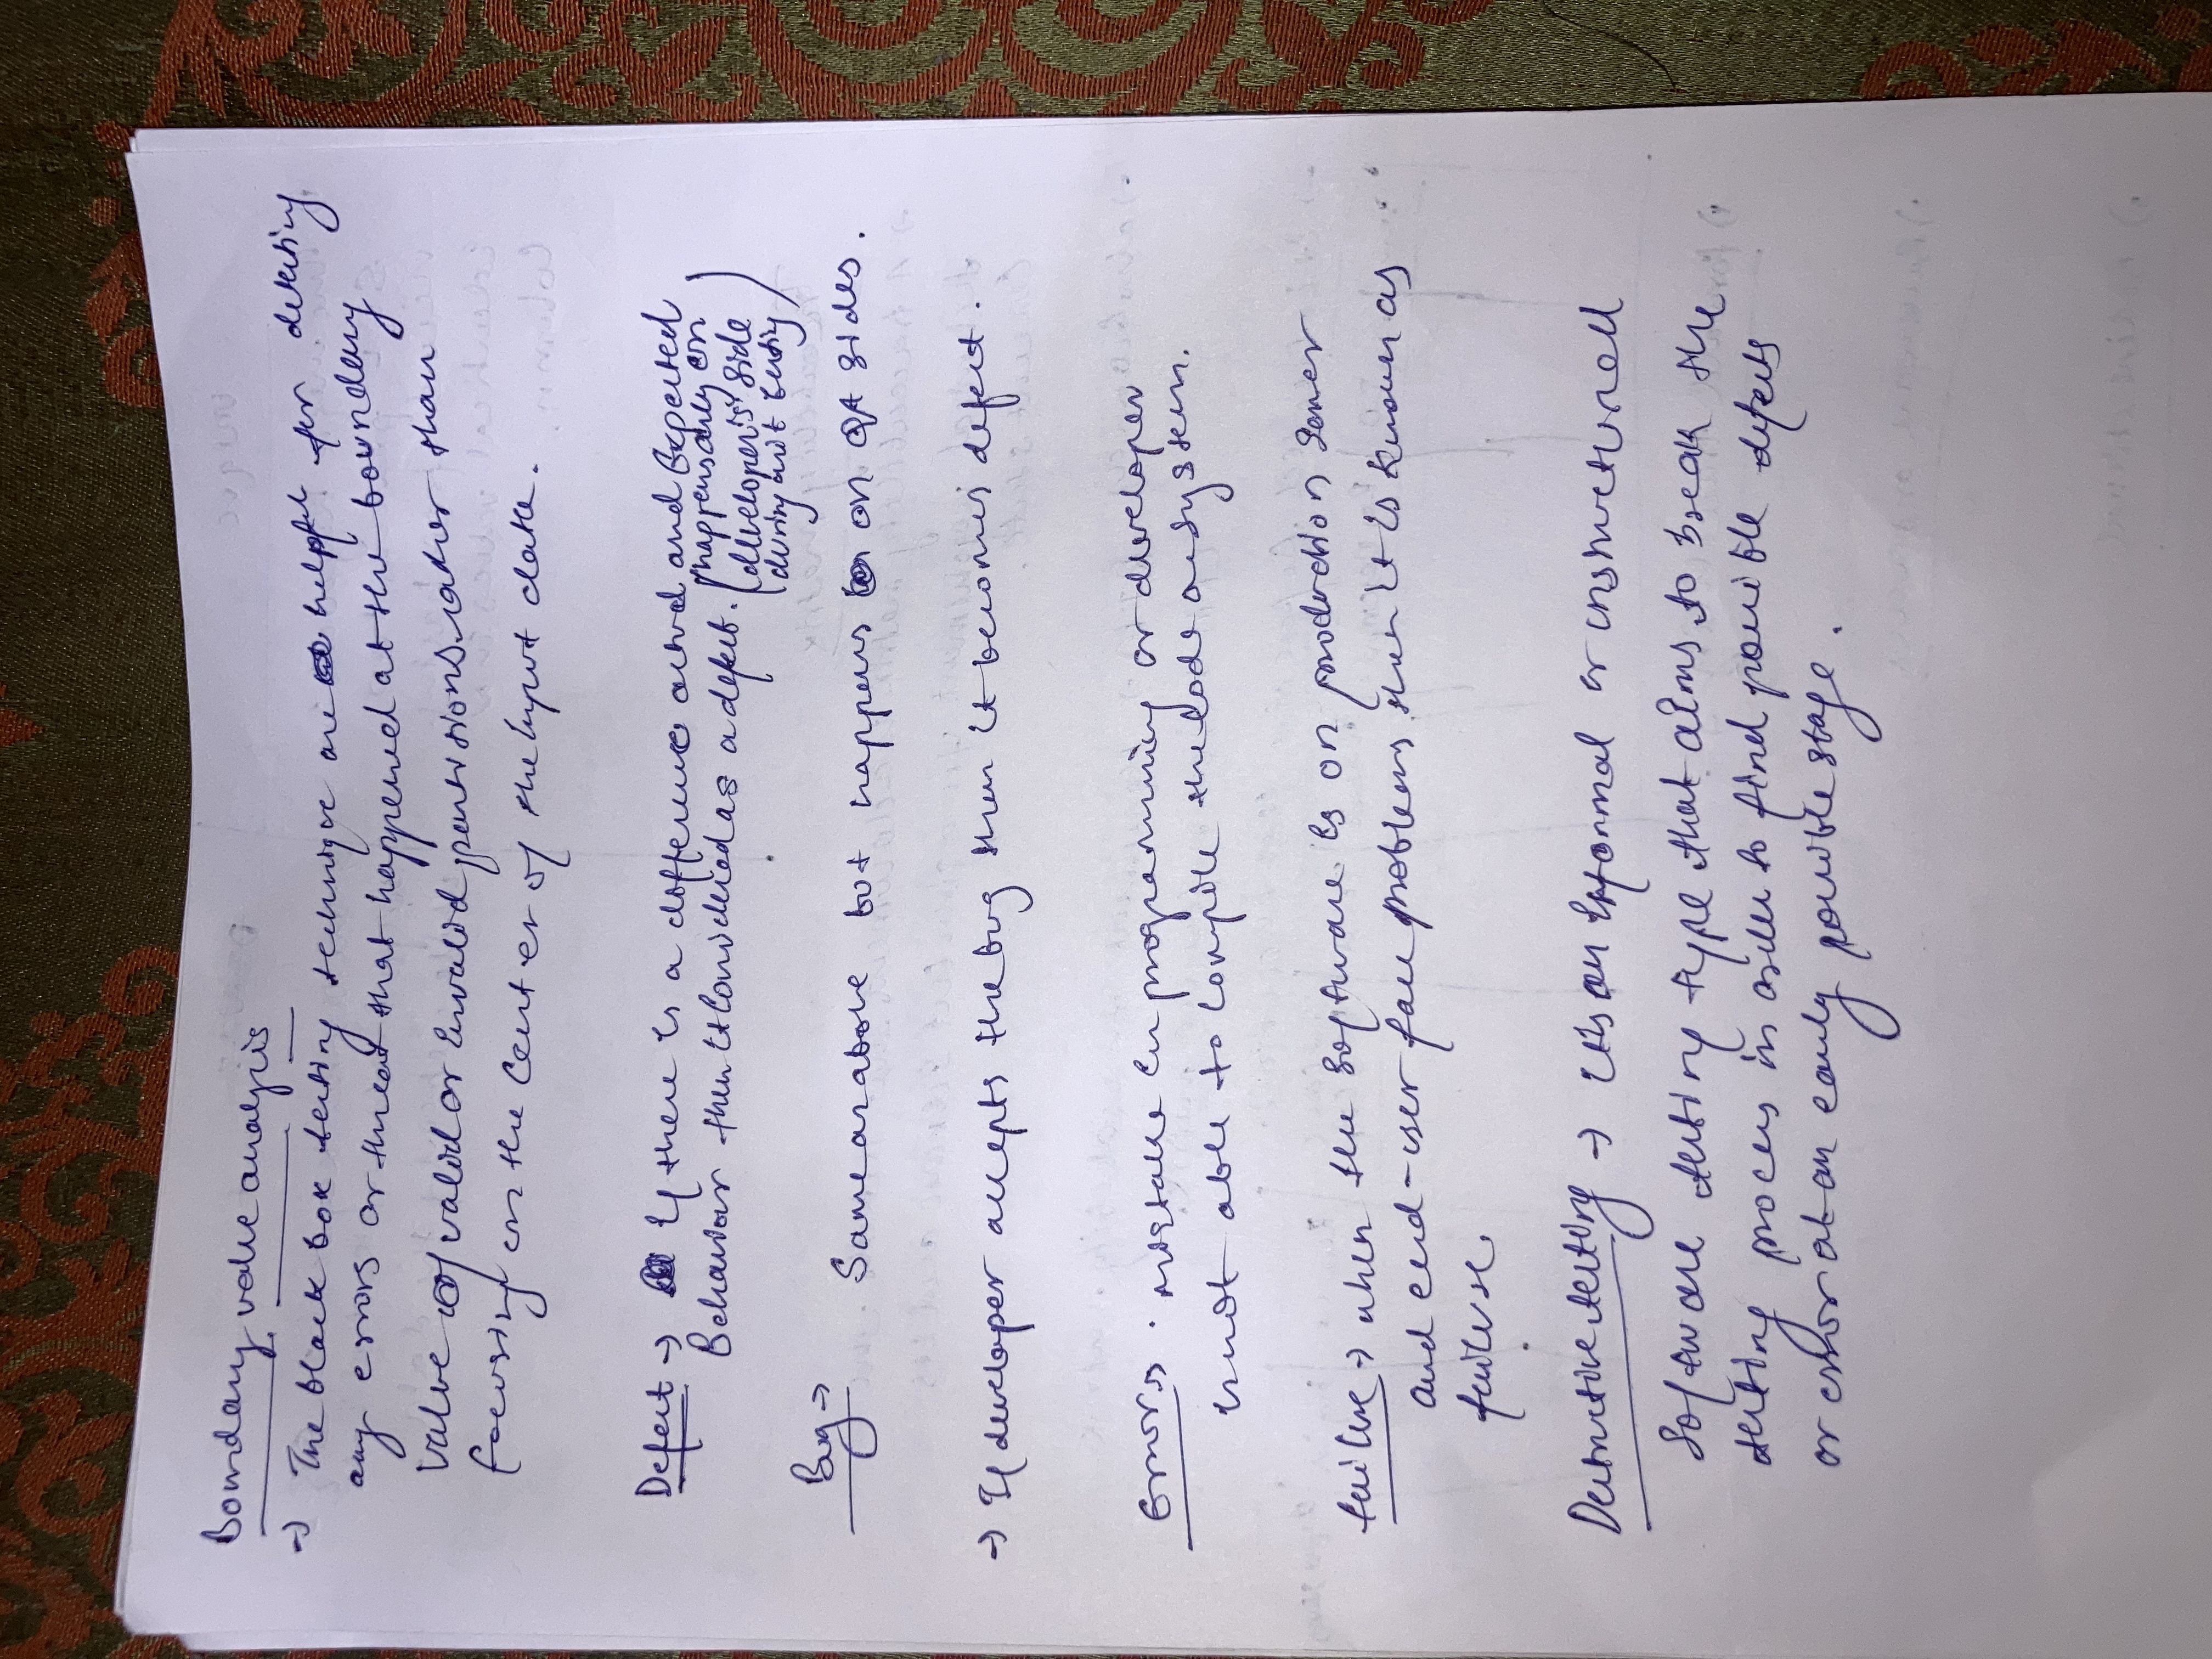 Boundary value analysis
→ The black box testing technique are helpful for detecting
any errors or threat that happened at the boundary
value of valid or invalid partitions rather than
focusing on the center of the input data.
Defect → If there is a difference actual and Expected
Behaviour then it considered as a defect. (happens only on
developer's side
during unit testing)
Bug →
Same as above but happens on QA sides.
→ If developer accepts the bug then it becomes defect.
Errors → mistake in programming or developer
is not able to compile the code or system.
failure → when the software is on production server
and end-user face problems then it is known as
failure.
Destructive testing → It's an Informal or unstructured
Software testing type that aims to break the
testing process in order to find possible defects
or error at an early possible stage.